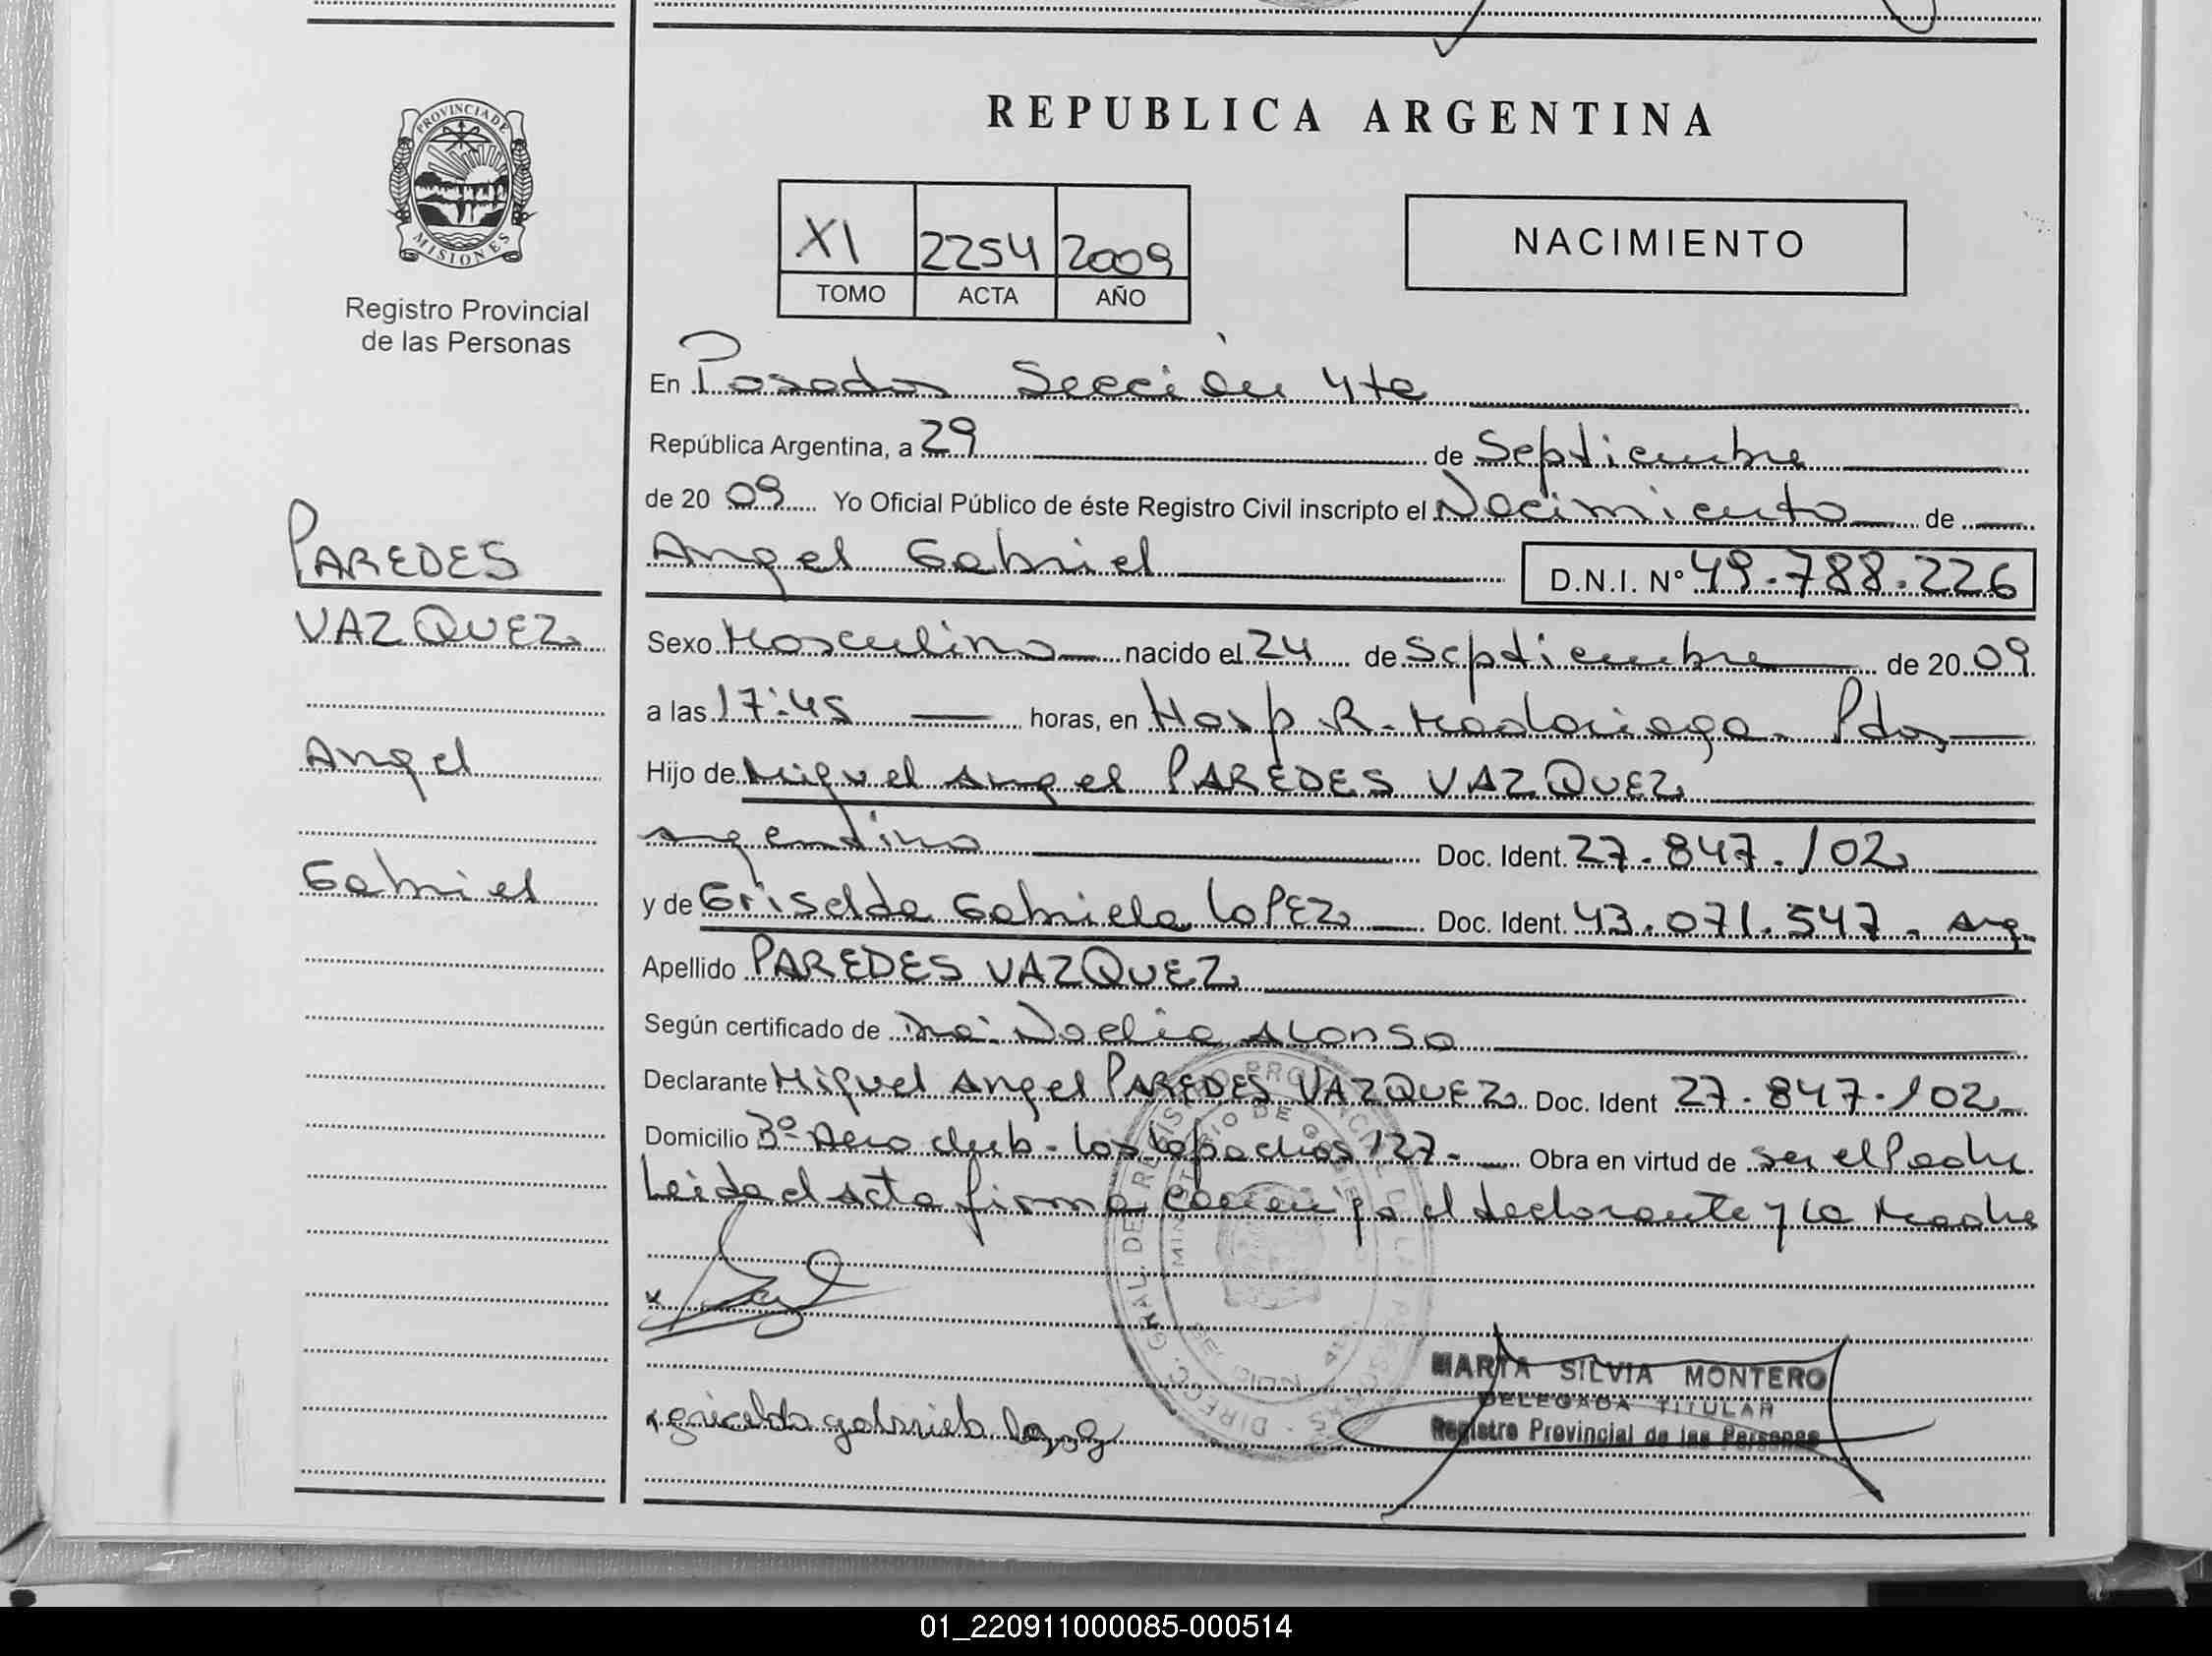 PROVINCIA DE
MISIONES
Registro Provincial
de las Personas
PAREDES
VAZQUEZ
Angel
Gabriel
REPUBLICA ARGENTINA
XI 2254 2009
TOMO ACTA AÑO
NACIMIENTO
En Posadas Sección 4ta
República Argentina, a 29 de Septiembre
de 20 09 Yo Oficial Público de éste Registro Civil inscripto el Nacimiento de
Angel Gabriel D.N.I. Nº 49.788.226
Sexo Masculino nacido el 24 de Septiembre de 20 09
a las 17:45 horas, en Hosp. R. Madariaga. Pdas
Hijo de Miguel Angel PAREDES VAZQUEZ
argentino Doc. Ident. 27.847.102
y de Griselda Gabriela LOPEZ Doc. Ident. 43.071.547. Arg.
Apellido PAREDES VAZQUEZ
Según certificado de Dra: Noelia Alonso
Declarante Miguel Angel PAREDES VAZQUEZ Doc. Ident 27.847.102
Domicilio Bº Aero club - Los Lapachos 127- Obra en virtud de ser el Padre
Leida el Acta firma conmigo el declarante y la Madre
griselda gabriela lopez
MARTA SILVIA MONTERO
DELEGADA TITULAR
Registro Provincial de las Personas
01_220911000085-000514